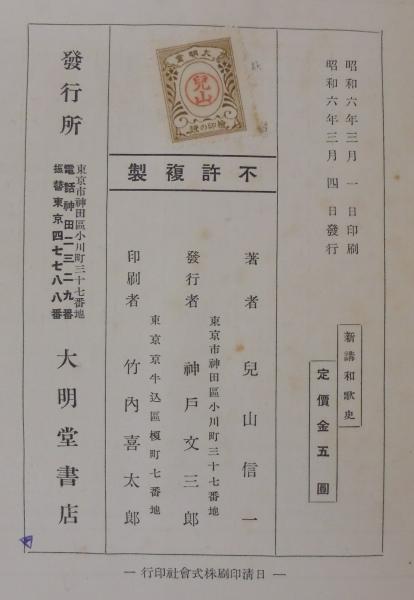 昭和六年三月一日印刷
昭和六年三月四日發行
新講和歌史
定價金五圓
大明堂
兒山
檢印の證
不許複製
著者 兒山信一
東京市神田區小川町三十七番地
發行者 神戸文三郎
東京市牛込區榎町七番地
印刷者 竹內喜太郎
發行所
東京市神田區小川町三十七番地
電話神田二三二九番
振替東京四七七八八番
大明堂書店
― 日清印刷株式會社印行 ―